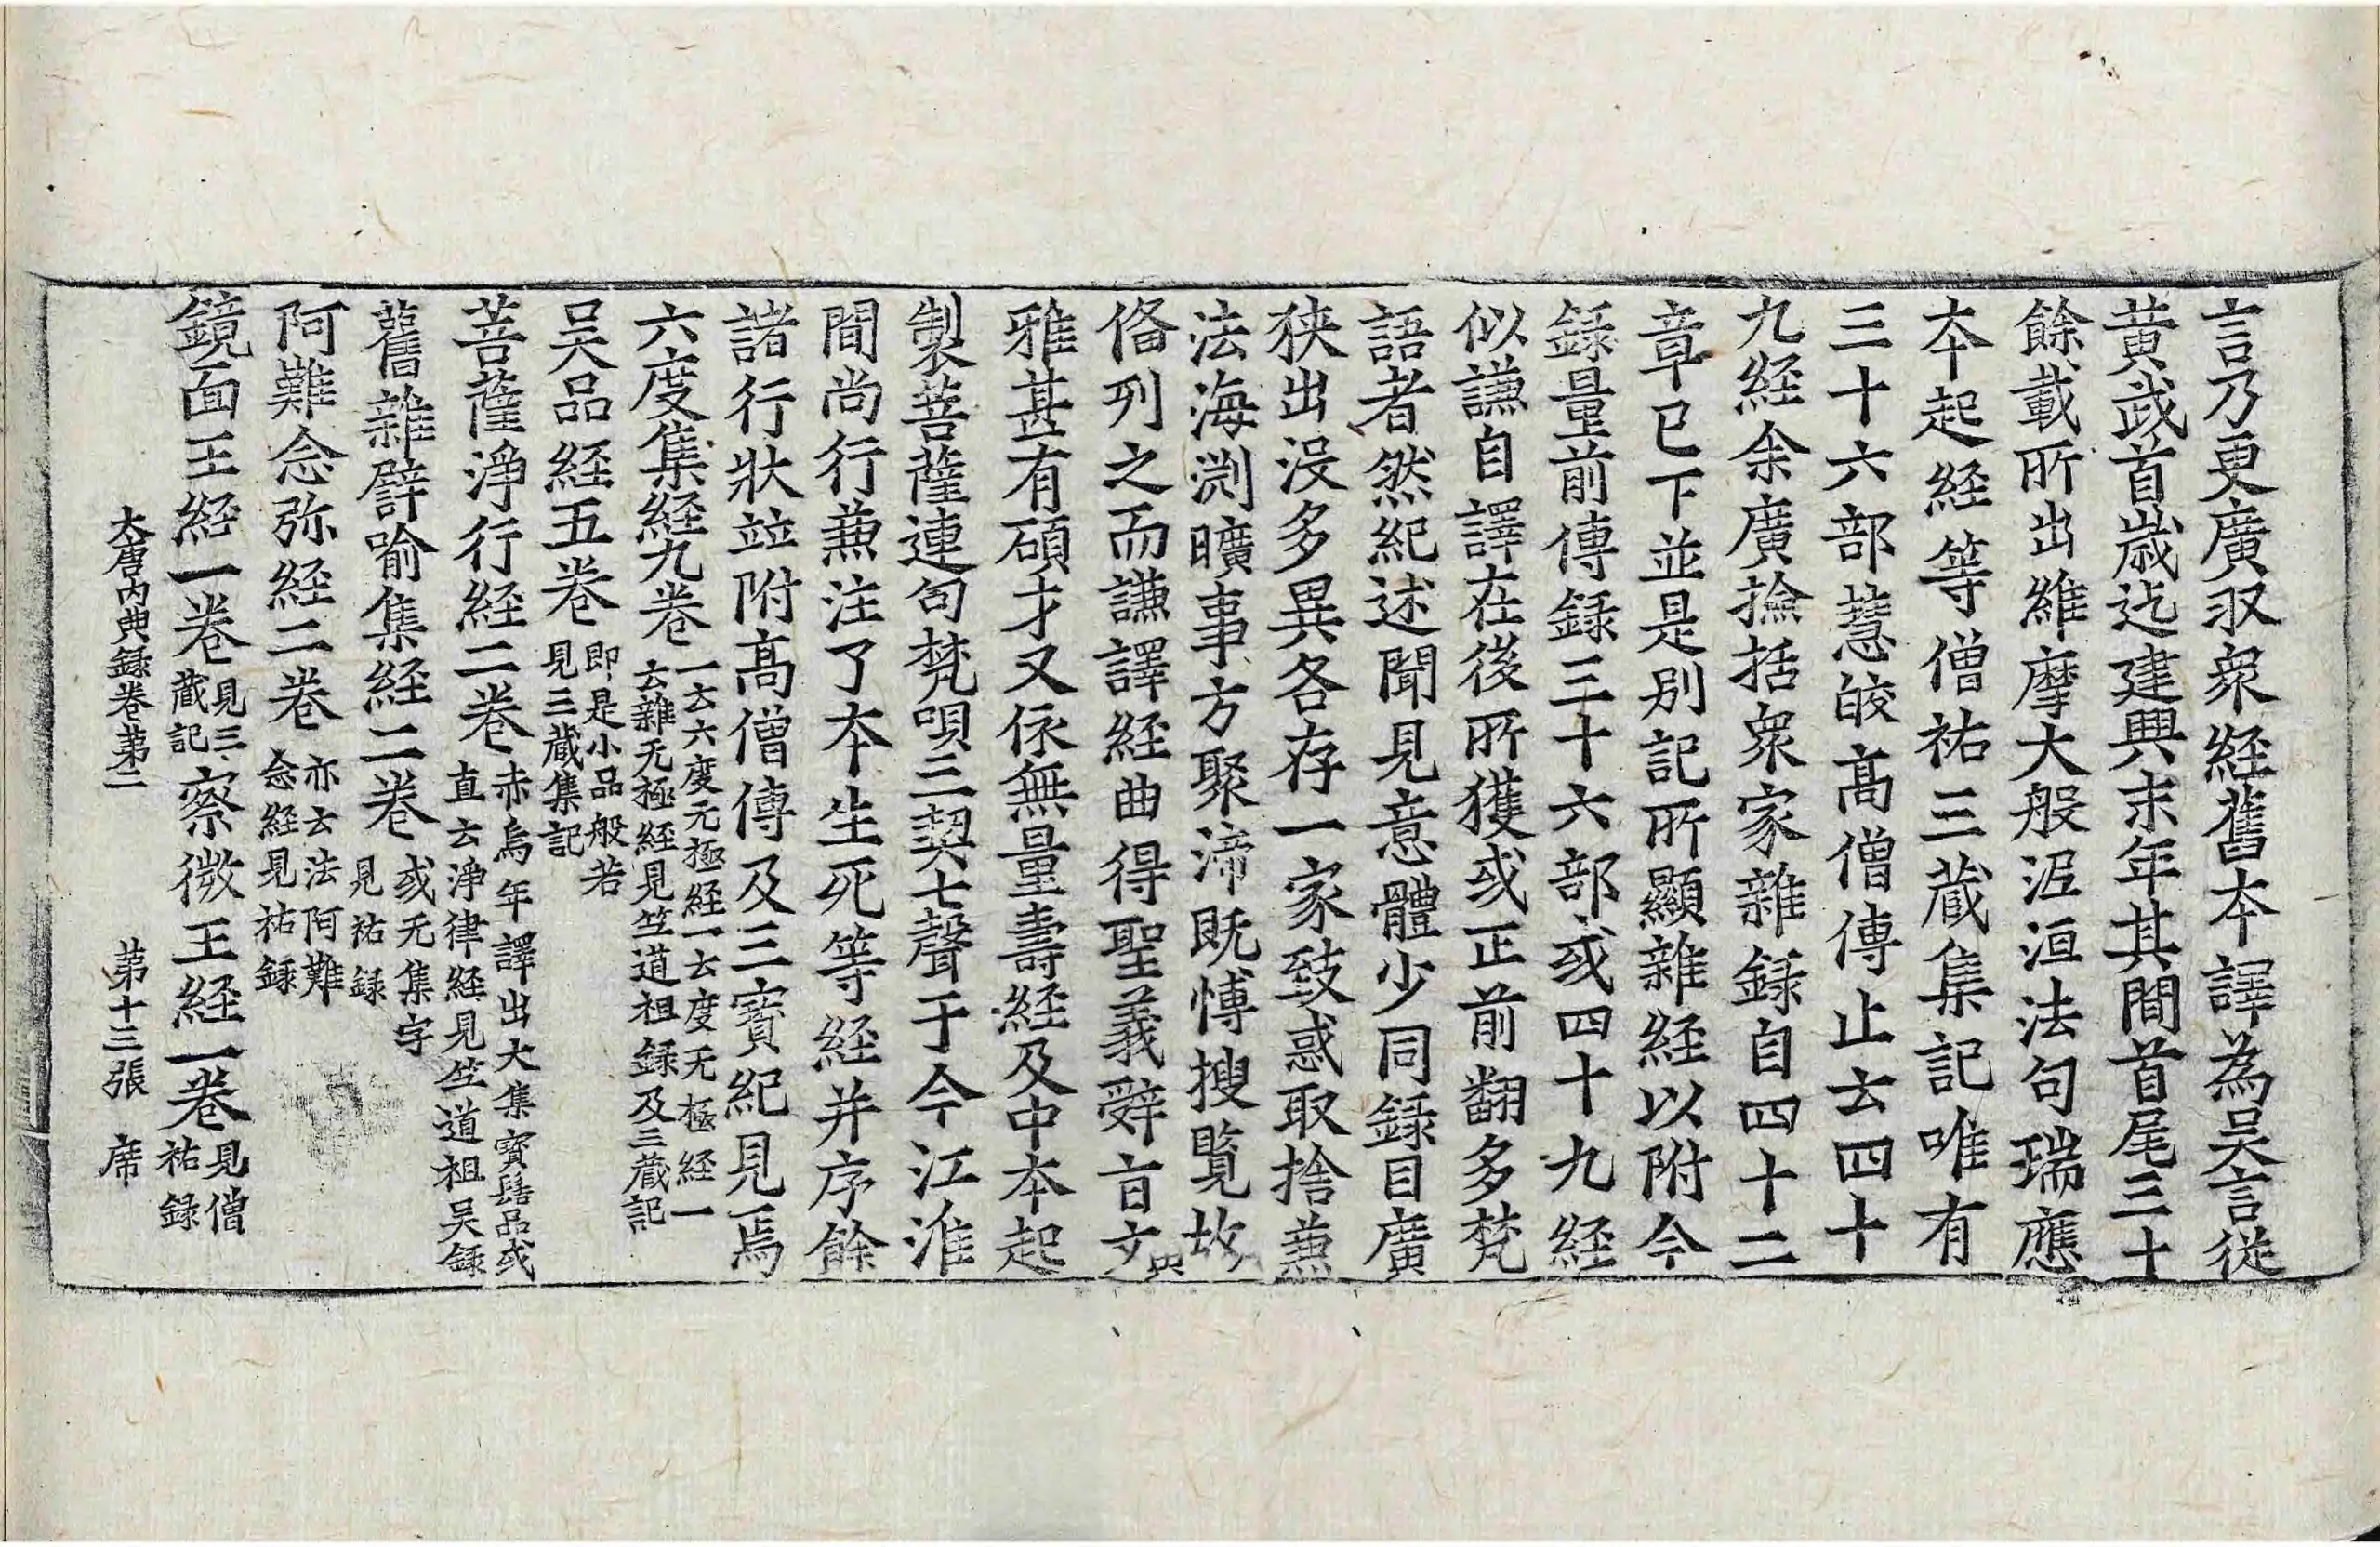 言乃更廣収衆経舊本譯為吴言從
黄武首歳迄建興末年其間首尾三十
餘載所出維摩大般泥洹法句瑞應
本起経等僧祐三蔵集記唯有
三十六部慧皎髙僧傳止云四十
九経余廣撿括衆家雜録自四十二
章已下並是别記所顯雜経以附今
録量前傳録三十六部或四十九経
似謙自譯在後所獲或正前翻多梵
語者然紀述聞見意體少同録目廣
狹出没多異各存一家致惑取捨兼
法海渕曠事方聚渧既愽搜覧故
俻列之而謙譯経曲得聖義辝旨文
雅甚有碩才又依無量壽経及中本起
製菩薩連句梵唄三契七聲于今江淮
間尚行兼注了本生死等経并序餘
諸行狀並附髙僧傳及三寳紀見焉
六度集経九卷一云六度无極経一云度无極経一
云雜无極経見竺道祖録及三蔵記
吴品経五卷即是小品般若
見三蔵集記
菩薩淨行経二卷赤烏年譯出大集寳髻品或
直云淨律経見竺道祖吴録
舊雜譬喻集経二卷或无集字
見祐録
阿難念弥経二卷亦云法阿難
念経見祐録
鏡面王経一卷見三
蔵記察微王経一卷見僧
祐録
大唐内典録卷第二 第十三張 席